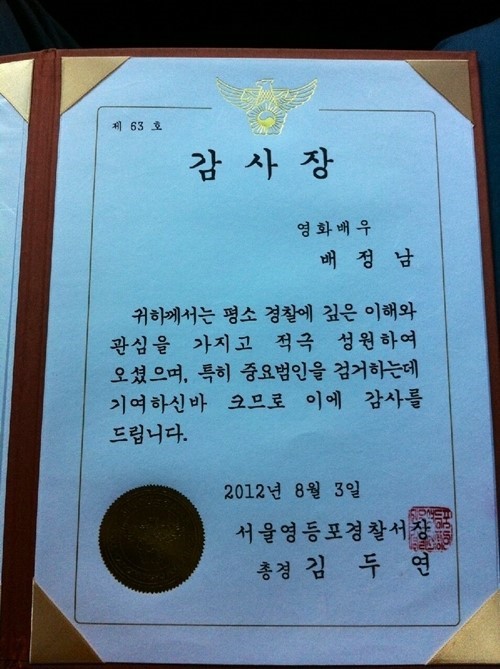 제 63 호
감 사 장
영화배우
배 정 남
귀하께서는 평소 경찰에 깊은 이해와
관심을 가지고 적극 성원하여
오셨으며, 특히 중요범인을 검거하는데
기여하신바 크므로 이에 감사를
드립니다.
2012년 8월 3일
서울영등포경찰서장
총경 김 두 연